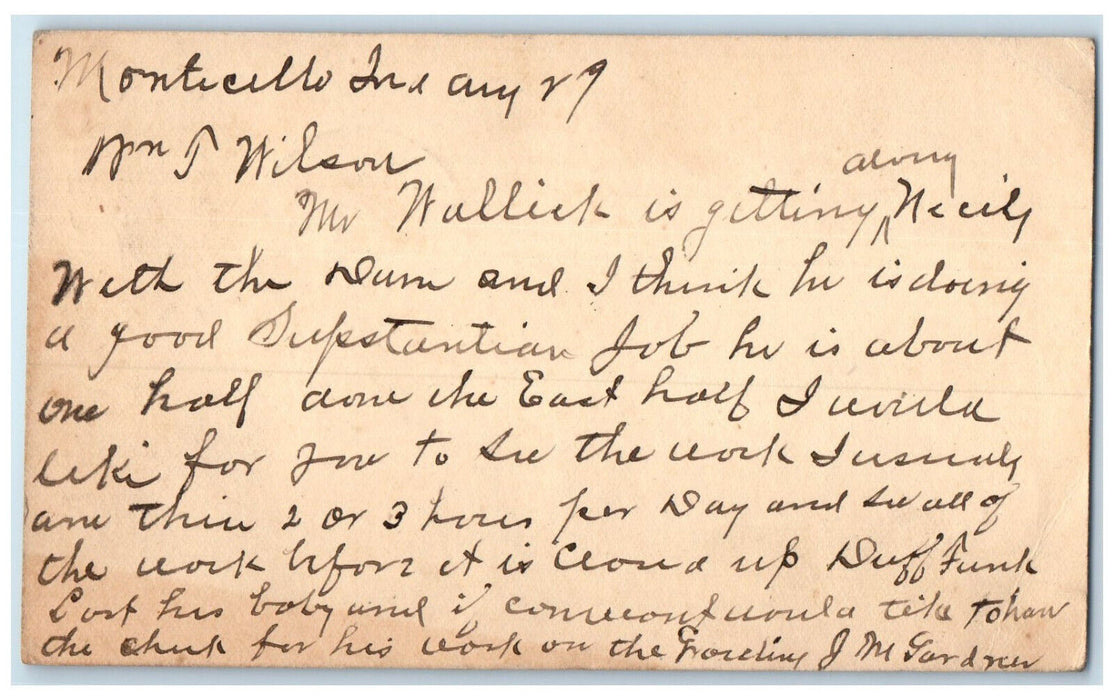 Monticello Ind Aug 29
Wm T Wilson
along
Mr Wallick is getting ^ Nicily
With the Dam and I think he is doing
a good Supstantian Job he is about
one half done the East half I would
like for you to See the work I usualy
am thire 2 or 3 hours per Day and See all of
the work before it is Closed up Duff Funk
Lost his baby and if convenient would like to have
the check for his work on the J M Gardner